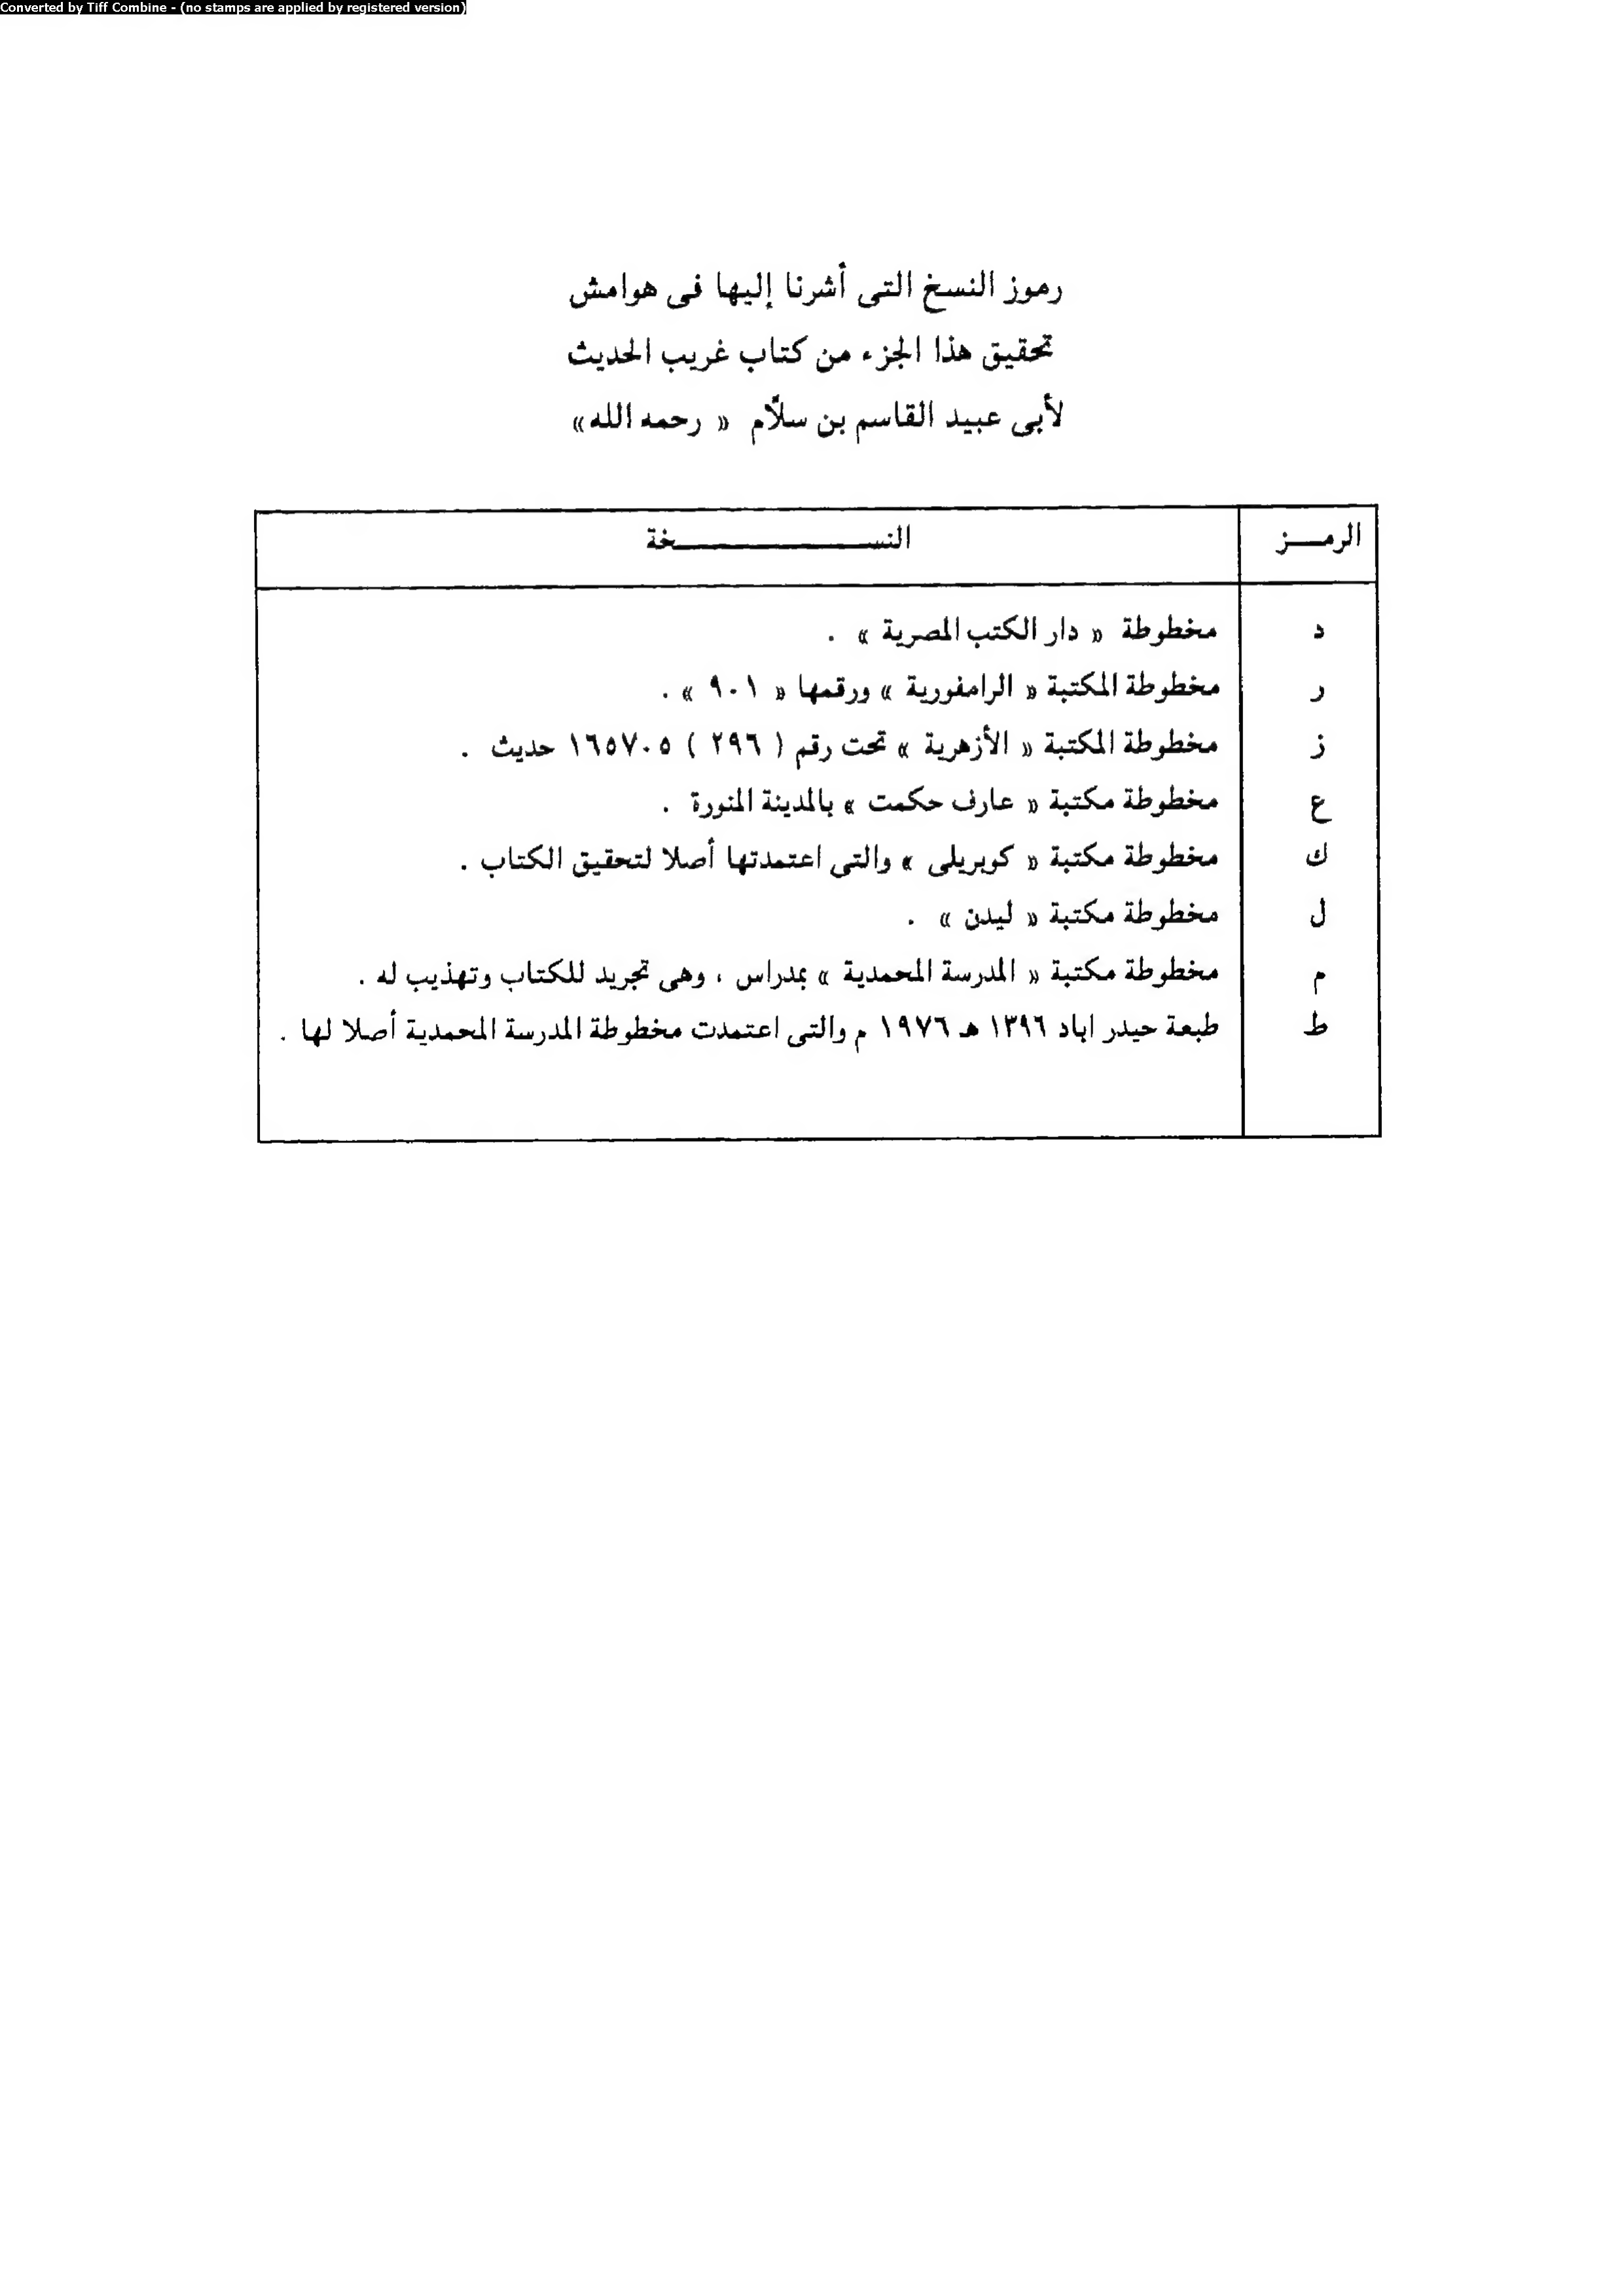 Converted by Tiff Combine - (no stamps are applied by registered version)
رموز النسخ التى أشرنا إليها فى هوامش
تحقيق هذا الجزء من كتاب غريب الحديث
لأبى عبيد القاسم بن سلاّم « رحمه الله»
الرمـــز النســـــــــــــــخة
د مخطوطة « دار الكتب المصرية » .
ر مخطوطة المكتبة « الرامفورية » ورقمها « ٩٠١ » .
ز مخطوطة المكتبة « الأزهرية » تحت رقم ( ٢٩٦ ) ١٦٥٧٠٥ حديث .
ع مخطوطة مكتبة « عارف حكمت » بالمدينة المنورة .
ك مخطوطة مكتبة « كوبريلى » والتى اعتمدتها أصلا لتحقيق الكتاب .
ل مخطوطة مكتبة « ليدن » .
م مخطوطة مكتبة « المدرسة المحمدية » بمدراس ، وهى تجريد للكتاب وتهذيب له .
ط طبعة حيدر اباد ١٣٩٦ هـ ١٩٧٦ م والتى اعتمدت مخطوطة المدرسة المحمدية أصلا لها .